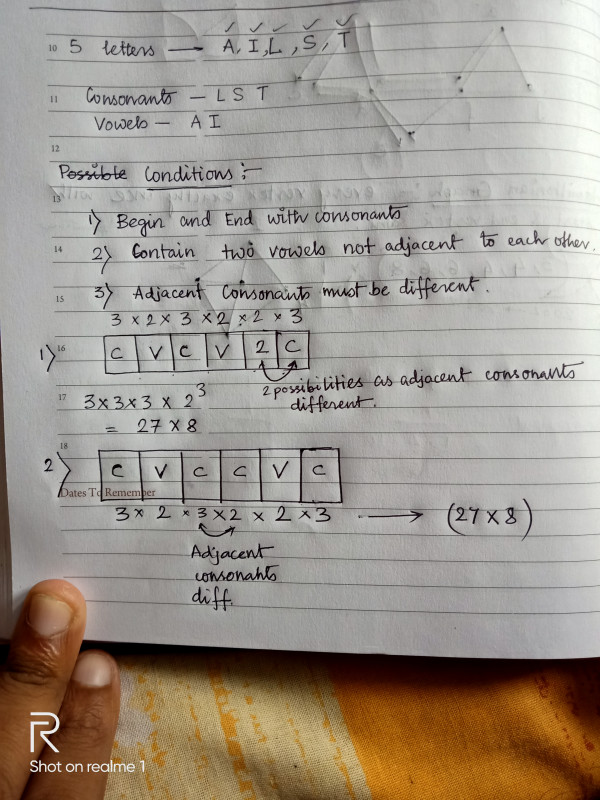 10 5 letters → A, I, L, S, T
11 Consonants – L S T
Vowels – A I
12
Possible Conditions :–
13
1) Begin and End with consonants
14 2) Contain two vowels not adjacent to each other.
15 3) Adjacent Consonants must be different.
3 × 2 × 3 × 2 × 2 × 3
1) 16 C V C V 2 C
2 possibilities as adjacent consonants
17 3×3×3 × 2³ different.
= 27 × 8
18
2) C V C C V C
Dates To Remember
3 × 2 × 3 × 2 × 2 × 3 → (27 × 8)
Adjacent
consonants
diff.
R
Shot on realme 1